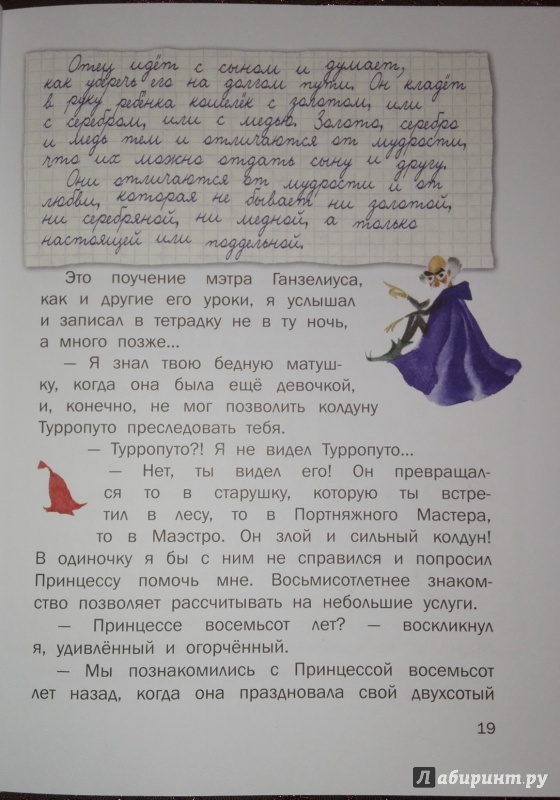 Отец идёт с сыном и думает,
как уберечь его на долгом пути. Он кладёт
в руку ребёнка кошелёк с золотом, или
с серебром, или с медью. Золото, серебро
и медь тем и отличаются от мудрости,
что их можно отдать сыну и другу.
Они отличаются от мудрости и от
любви, которая не бывает ни золотой,
ни серебряной, ни медной, а только
настоящей или поддельной.
Это поучение мэтра Ганзелиуса,
как и другие его уроки, я услышал
и записал в тетрадку не в ту ночь,
а много позже...
— Я знал твою бедную матуш-
ку, когда она была ещё девочкой,
и, конечно, не мог позволить колдуну
Турропуто преследовать тебя.
— Турропуто?! Я не видел Турропуто...
— Нет, ты видел его! Он превращал-
ся то в старушку, которую ты встре-
тил в лесу, то в Портняжного Мастера,
то в Маэстро. Он злой и сильный колдун!
В одиночку я бы с ним не справился и попросил
Принцессу помочь мне. Восьмисотлетнее знаком-
ство позволяет рассчитывать на небольшие услуги.
— Принцессе восемьсот лет? — воскликнул
я, удивлённый и огорчённый.
— Мы познакомились с Принцессой восемьсот
лет назад, когда она праздновала свой двухсотый
19
Лабиринт.ру